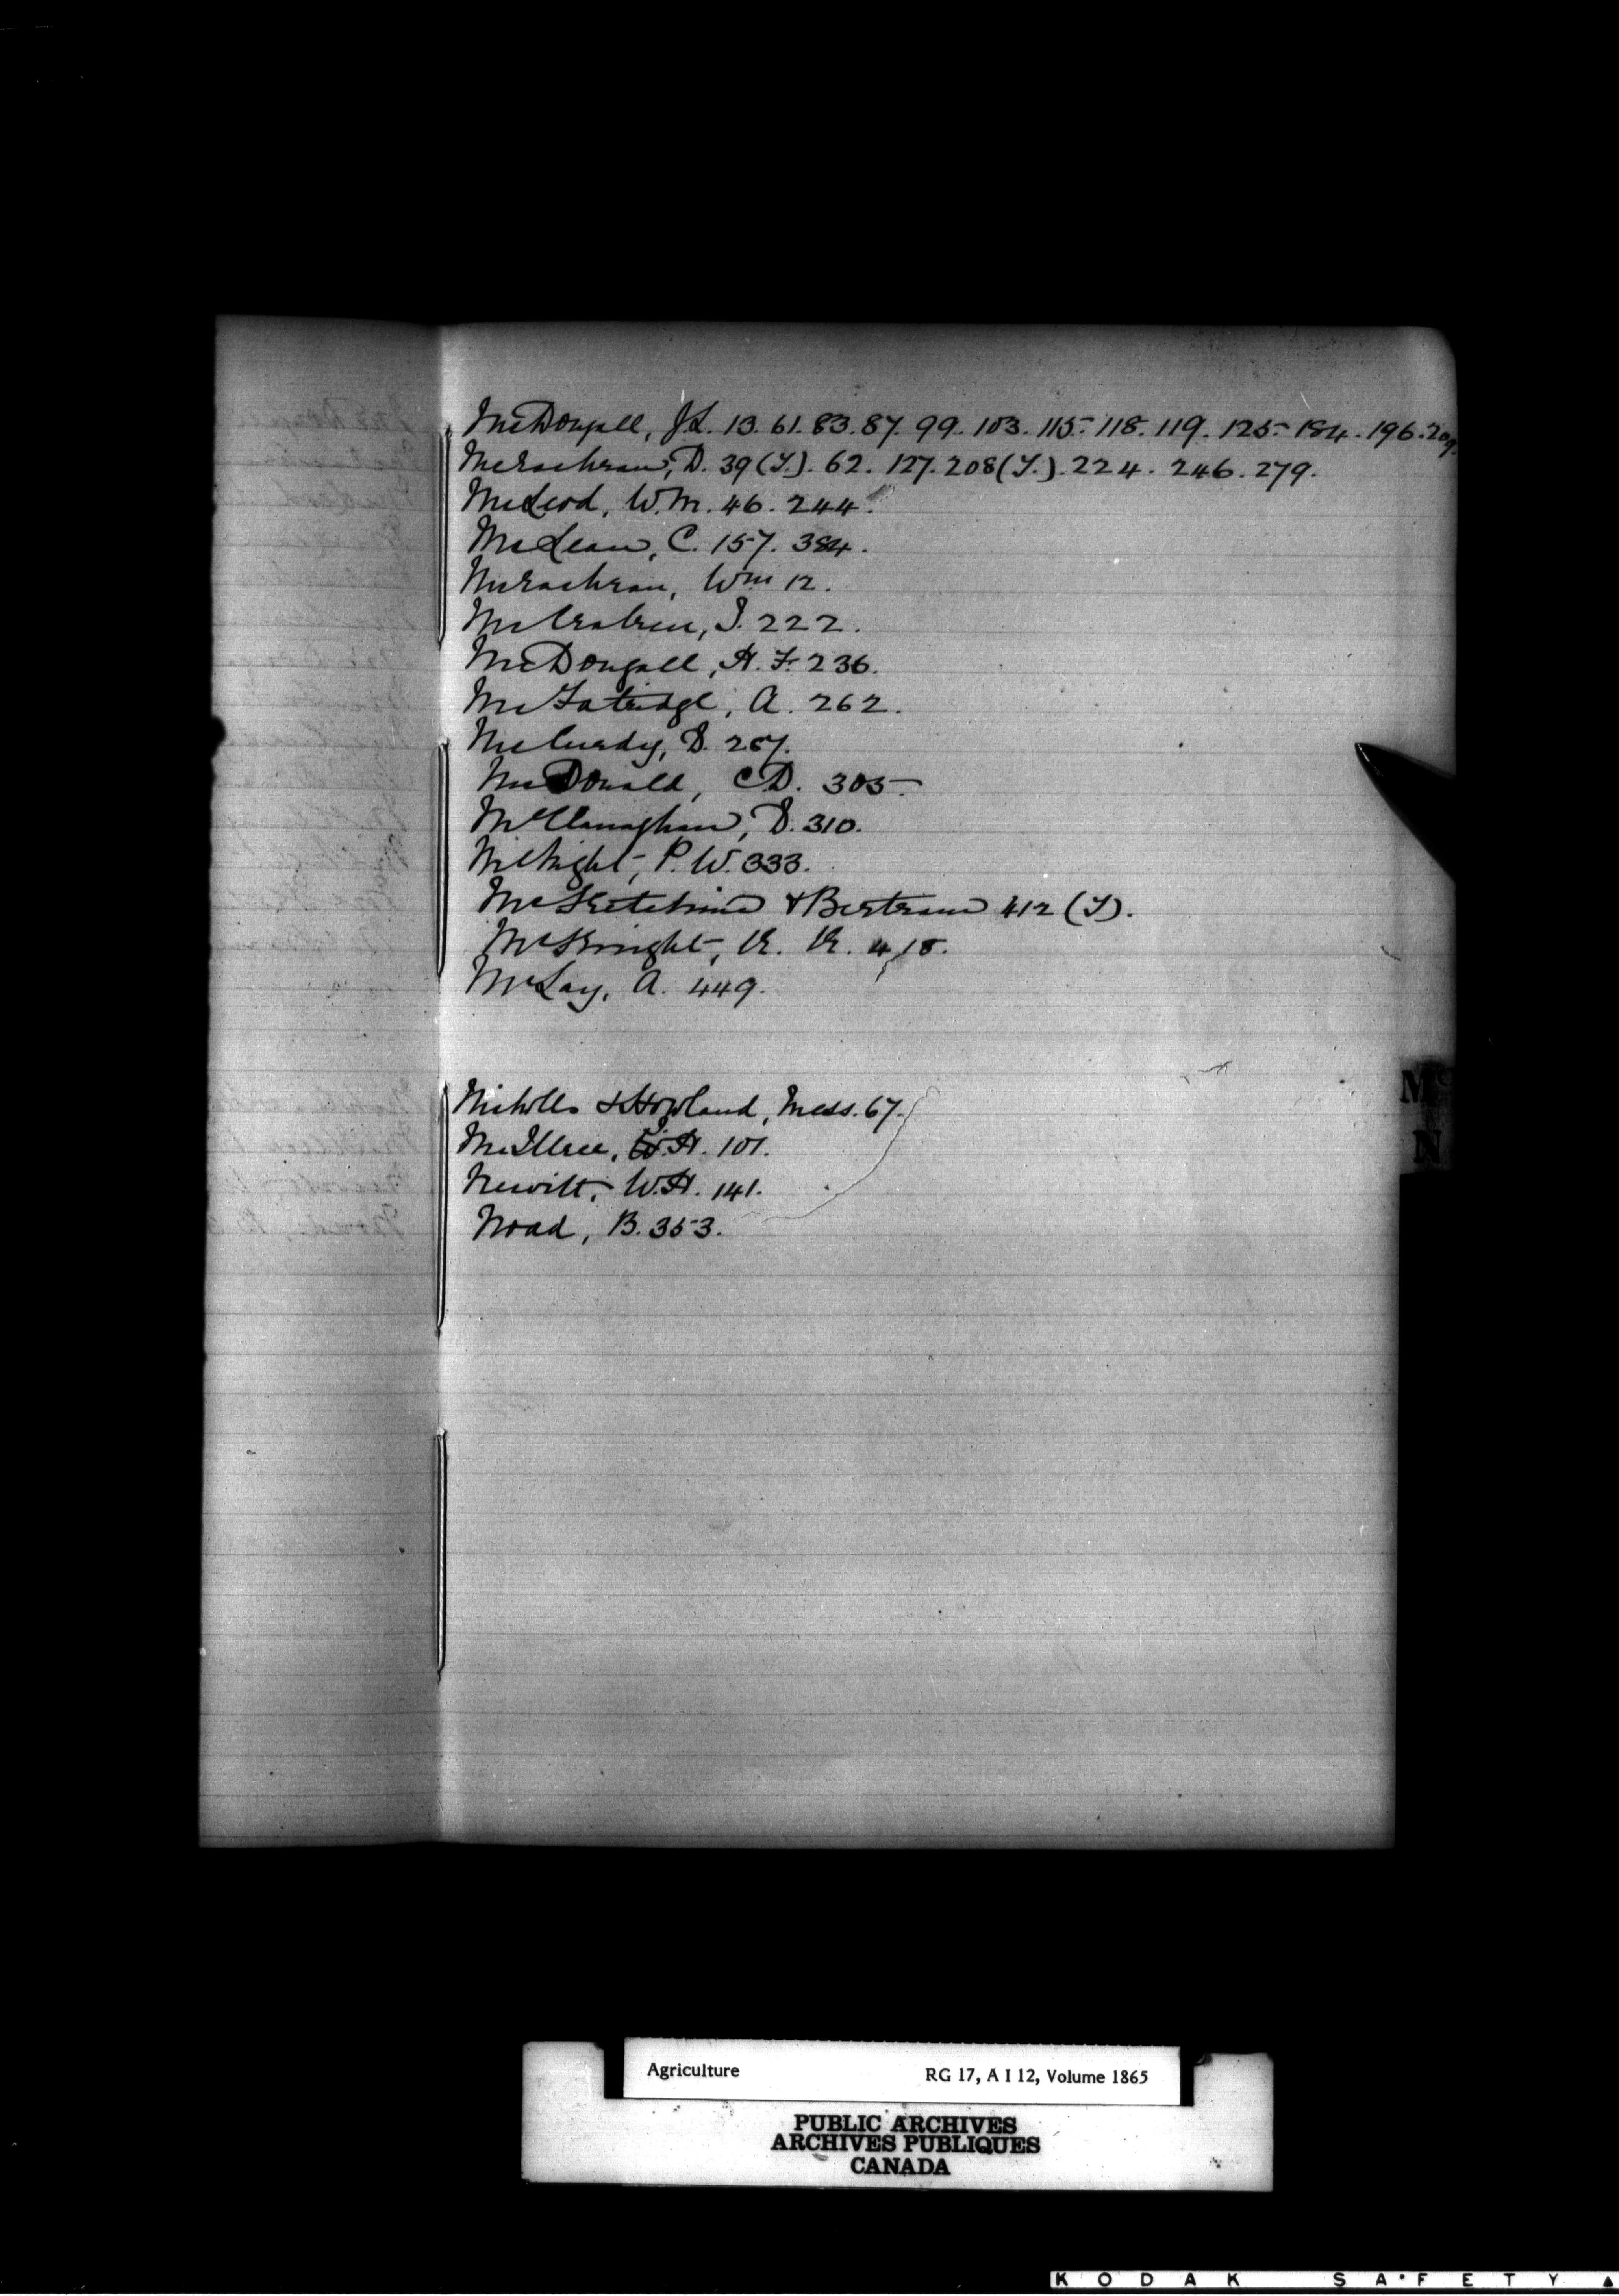 McDougall, J.L. 13. 61. 83. 87. 99. 103. 115. 118. 119. 125. 184. 196. 209.
McEachran, D. 39 (T.). 62. 127. 208 (T.). 224. 246. 279.
McLeod, W.M. 46. 244.
McLean, C. 157. 384.
McEachran, Wm 12.
McCraken, J. 222.
McDougall, H. F. 236.
McFatridge, A. 262.
McCurdy, D. 267.
McDonald, C.D. 305.
McClanaghan, D. 310.
P. W. 333.
McKetchine & Bertram 412 (T).
McKnight, R. R. 418.
McLay, A. 449.
Nicholls & Howland, Mess. 67.
McIllree, J.H. 101.
Newitt, W.H. 141.
Noad, B. 353.
Mc
N
Agriculture RG 17, A I 12, Volume 1865
PUBLIC ARCHIVES
ARCHIVES PUBLIQUES
CANADA
KODAK SAFETY